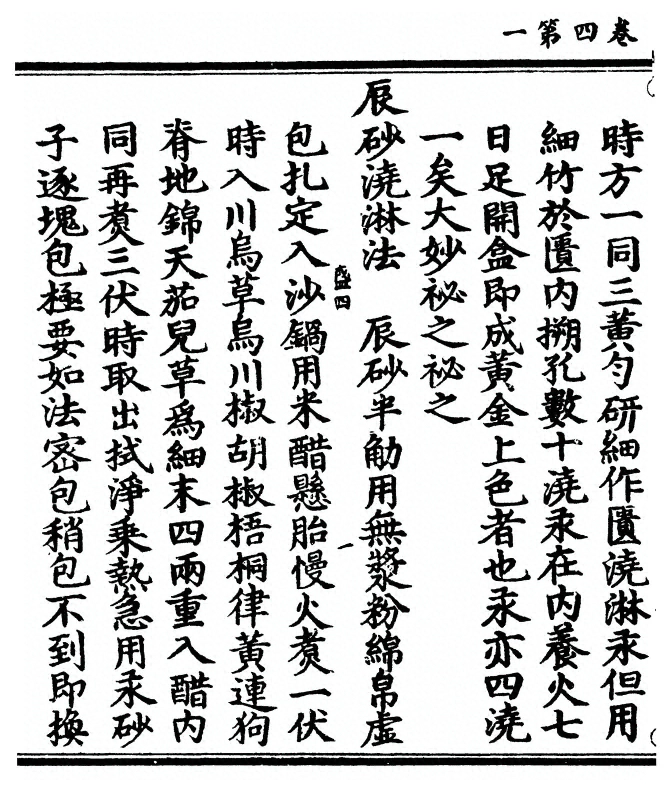 一第四卷
時方一同三黃勻研細作匱澆淋汞但用
細竹於匱內搠孔數十澆汞在內養火七
日足開盒即成黃金上色者也汞亦四澆
一矣大妙祕之祕之
辰砂澆淋法　辰砂半觔用無漿粉綿帛虛
包扎定入沙鍋用米醋懸胎慢火煑一伏
時入川烏草烏川椒胡椒梧桐律黃連狗
脊地錦天茄兒草爲細末四兩重入醋內
同再煑三伏時取出拭淨乘熱急用汞砂
子逐塊包極要如法密包稍包不到即換
盛四
一